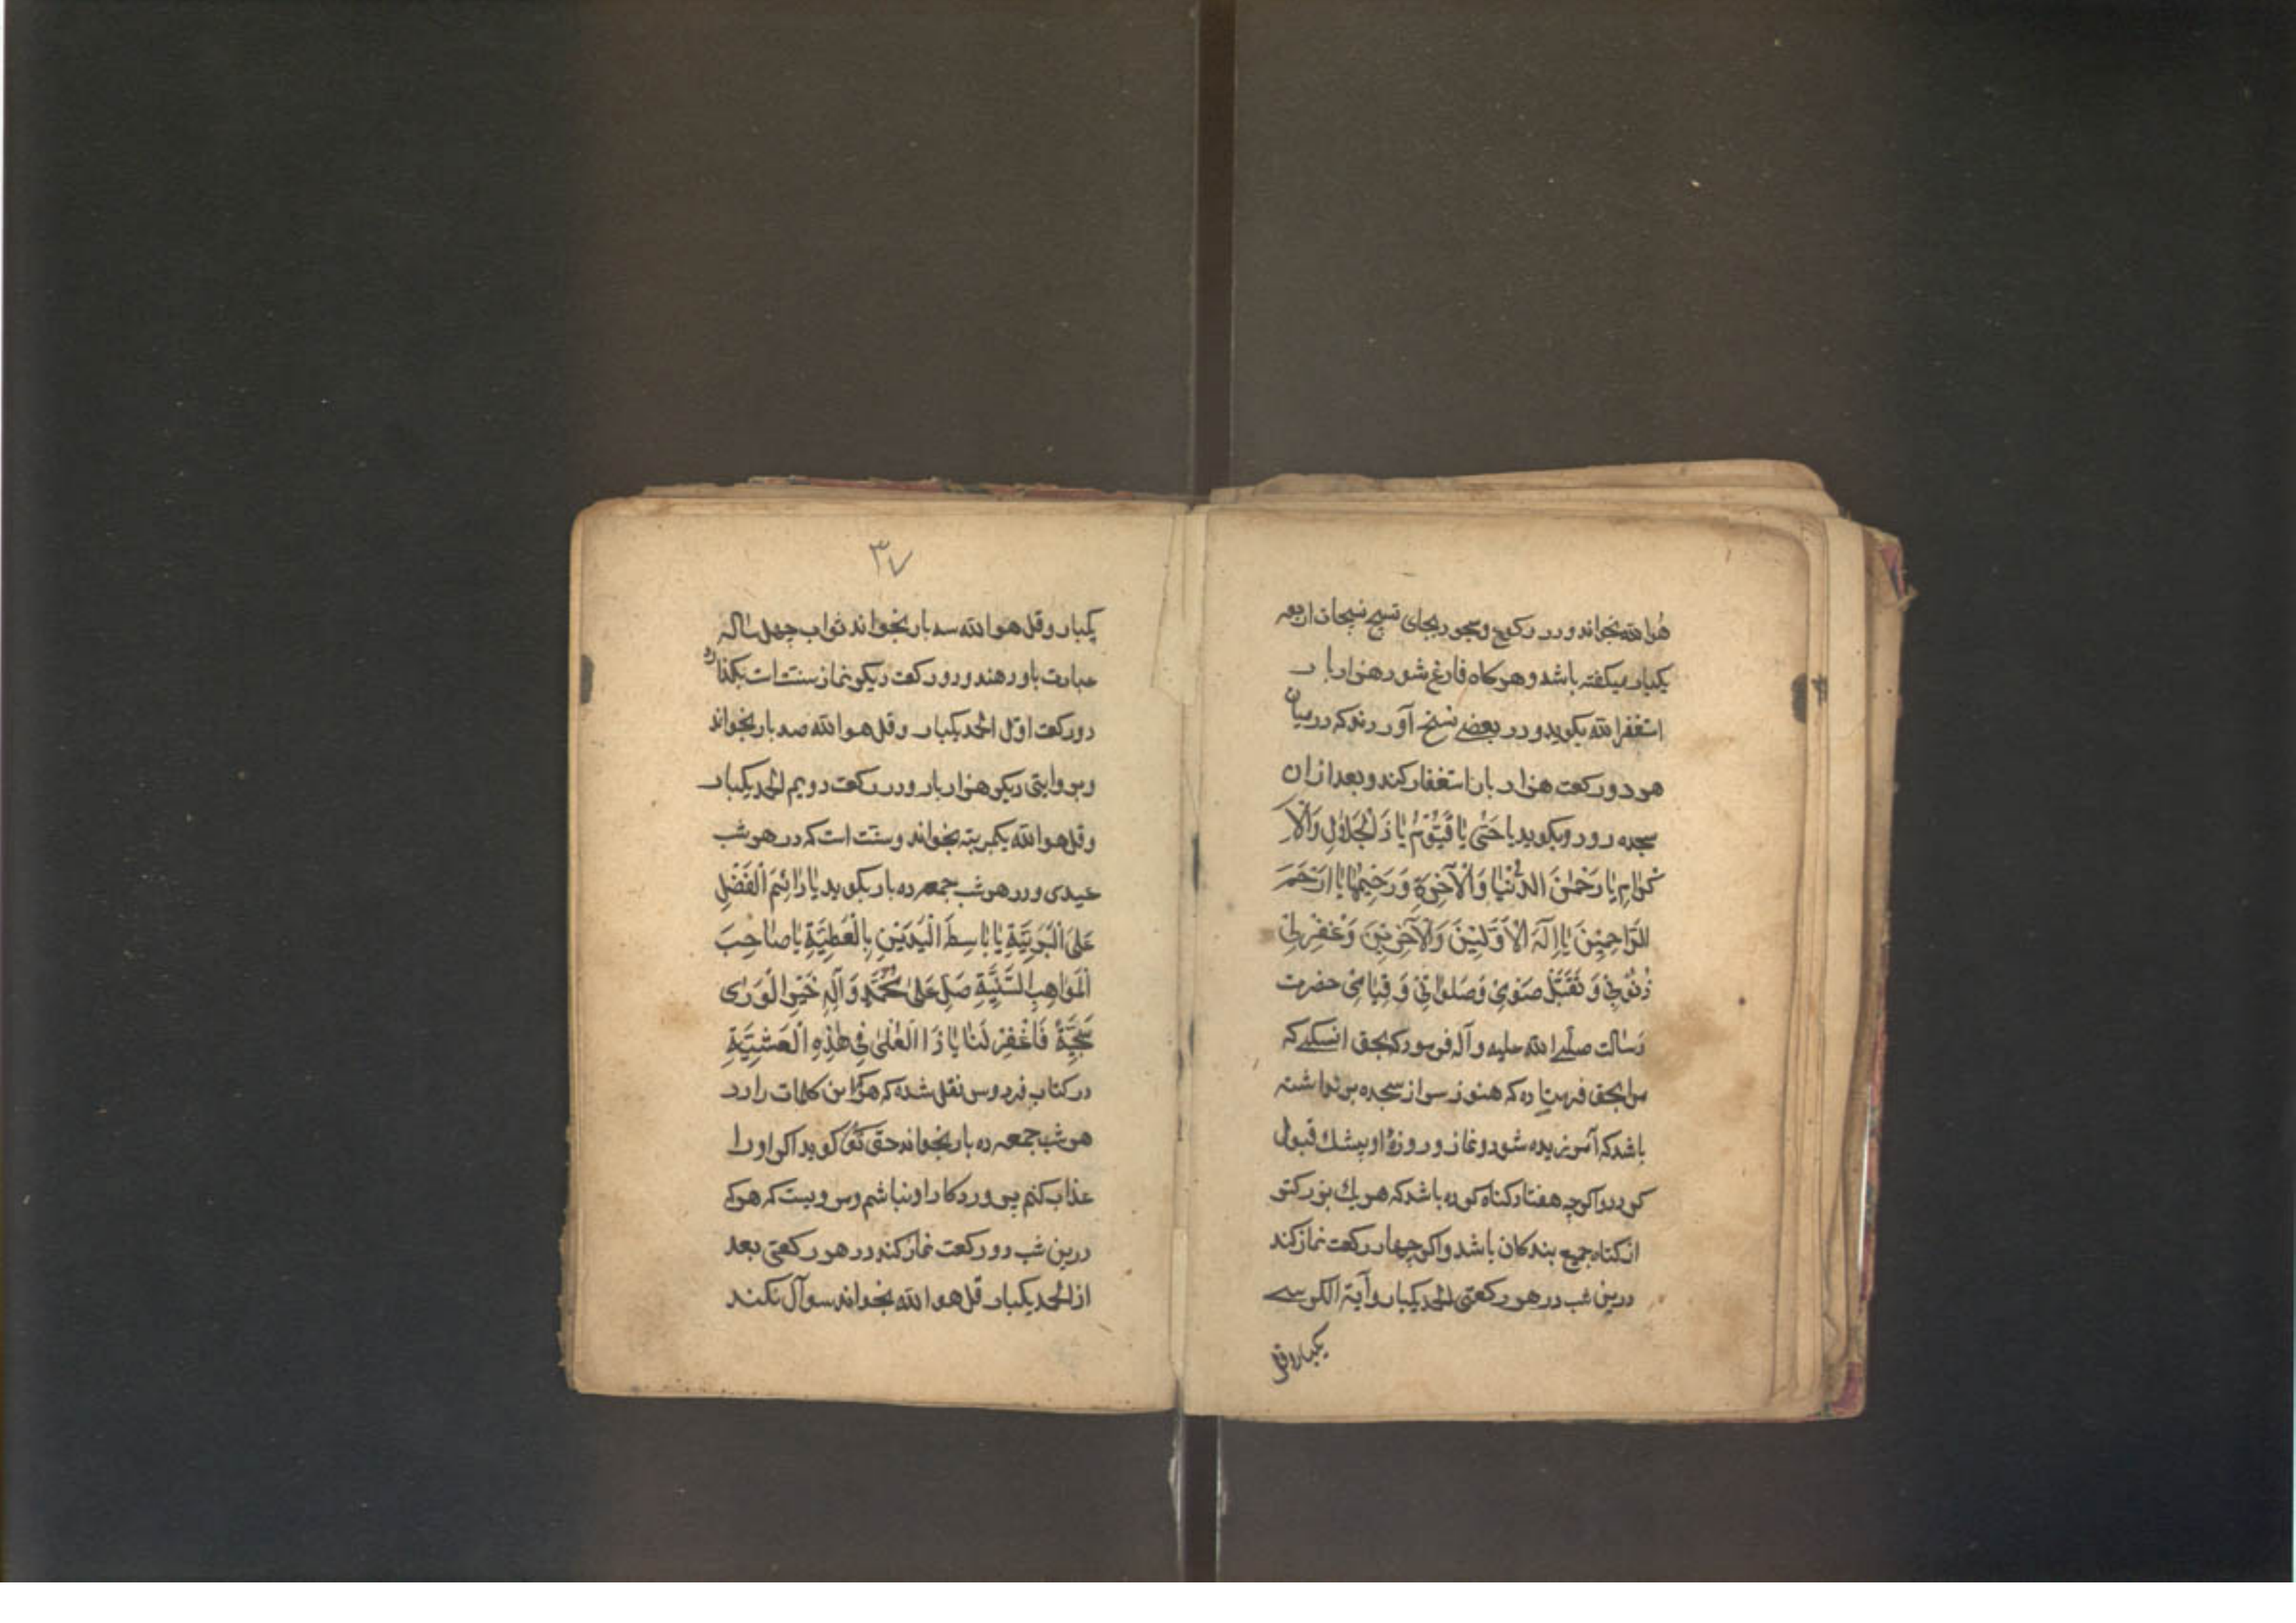 هُو الله بخواند و در رکوع و سجود بجای تسبیح تسبیحات اربعه
یکبار میکفته باشد و هرکاه فارغ شود هزار بار
استغفر الله بکوید و در بعضے نسخ آوردند که در میان
هر دو رکعت هزار بار استغفار کند و بعد از ان
سجده رود و بکوید یا حَیُّ یَا قَیُّوْمُ یَا ذَالْجَلَالِ وَالْاِ
کْرَامِ یَا رَحْمٰنَ الدُّنْیَا وَالْآخِرَةِ وَرَحِیْمَهُمَا یَا اَرْحَمَ
الرَّاحِمِیْنَ یَا اِلٰهَ الْاَوَّلِیْنَ وَالْآخِرِیْنَ وَغْفِرْلِیْ
ذُنُوْبِیْ وَ تَقَبَّلْ صَوْمِیْ وَصَلَوٰاتِیْ وَ قِیَامِیْ حضرت
رسالت صلے الله علیه و آله فرمود که بحق انکسے که
مرا بحق فرستاده که هنوز سر از سجده برنداشته
باشد که آمرزیده شود و نماز و روزهٔ او بیشك قبول
کردد و اکرچه هفتاد کناه کرده باشد که هر یك بزرکتر
از کناه جمیع بندکان باشد و اکر چهار رکعت نماز کند
درین شب در هر رکعتی الحمد یکبار و آیة الکرسے
یکبار و قل
۳۷
یکبار و قل هو الله سه بار بخواند ثواب چهل ساله
عبادت باو دهند و دو رکعت دیکر نماز سنت است بکذارد
در رکعت اوّل الحمد یکبار و قل هو الله صد بار بخواند
و بروایتی دیکر هزار بار و در رکعت دویم الحمد یکبار
و قل هو الله یکمرتبه بخواند و سنّت است که در هر شب
عیدی و در هر شب جمعه ده بار بکوید یَا دَائِمَ الْفَضْلِ
عَلَی الْبَرِیَّةِ یَا بَاسِطَ الْیَدَیْنِ بِالْعَطِیَّةِ یَا صَاحِبَ
الْمَوَاهِبِ السَّنِیَّةِ صَلِّ عَلٰی مُحَمَّدٍ وَ آلِهِ خَیْرِ الْوَرٰی
سَجِیَّةً فَاغْفِرْ لَنَا یَا ذَا الْعُلٰی فِیْ هٰذِهِ الْعَشِیَّةِ
در کتاب فردوس نقل شده که هرکه این کلمات را در
هر شب جمعه ده بار بخواند حق تعٰ کوید اکر او را
عذاب کنم پروردکار او نباشم و مرویست که هرکه
درین شب دو رکعت نماز کند در هر رکعتی بعد
از الحمد یکبار قل هو الله بخواند سوآل نکند